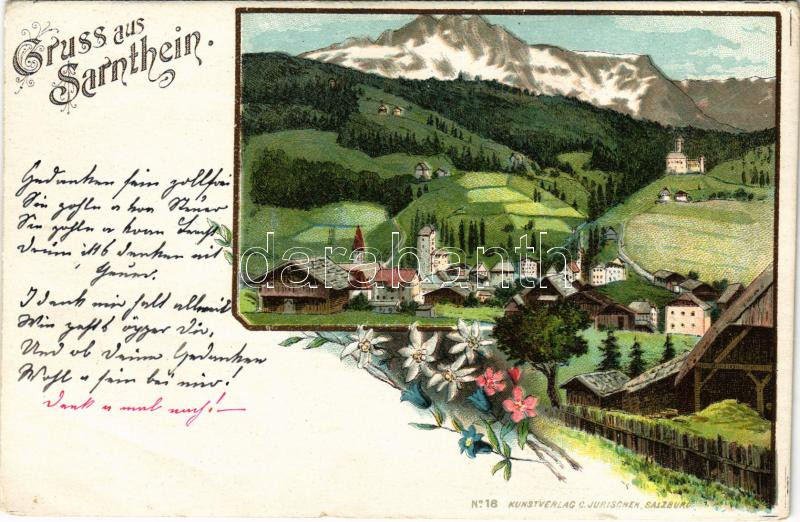 Gruss aus
Sarnthein.
Gedanken sein zollfrei
Sie zohln a koa Steuer
Sie zohln a koan
Drum is's denken nit
I denk mir halt allweil
Wie gehts öpper Dir,
Und ob Deine Gedanken
Wohl a sein bei mir!
Denk a mal nach! —
darabanth.com
No. 18 KUNSTVERLAG C. JURISCHEK, SALZBURG